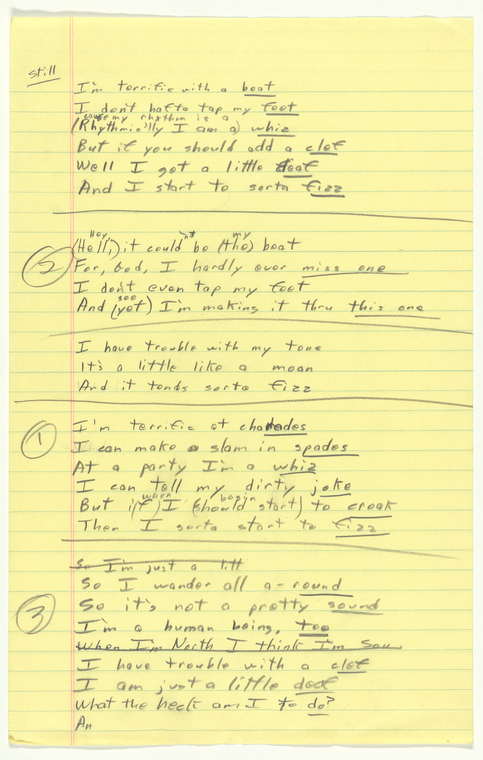 still
I'm terrific with a beat
I don't hafta tap my foot
cause my rhythm is a
(Rhythmic'lly I am a) whiz
But if you should add a clef
Well I got a little deef
And I start to sorta fizz
Hey, n't my
(Hell,) it could be (the) beat
2 For, God, I hardly ever miss one
I don't even tap my foot
soo
And (yet) I'm making it thru this one
I have trouble with my tone
It's a little like a moan
And it tends sorta fizz
1 I'm terrific at charades
I can make a slam in spades
At a party I'm a whiz
I can tell my dirty joke
when begin
But i(f) I (should start) to croak
Then I sorta start to fizz
So I'm just a litt
So I wander all a-round
3 So it's not a pretty sound
I'm a human being, too
When I'm North I think I'm Sou
I have trouble with a clef
I am just a little deef
What the heck am I to do?
An